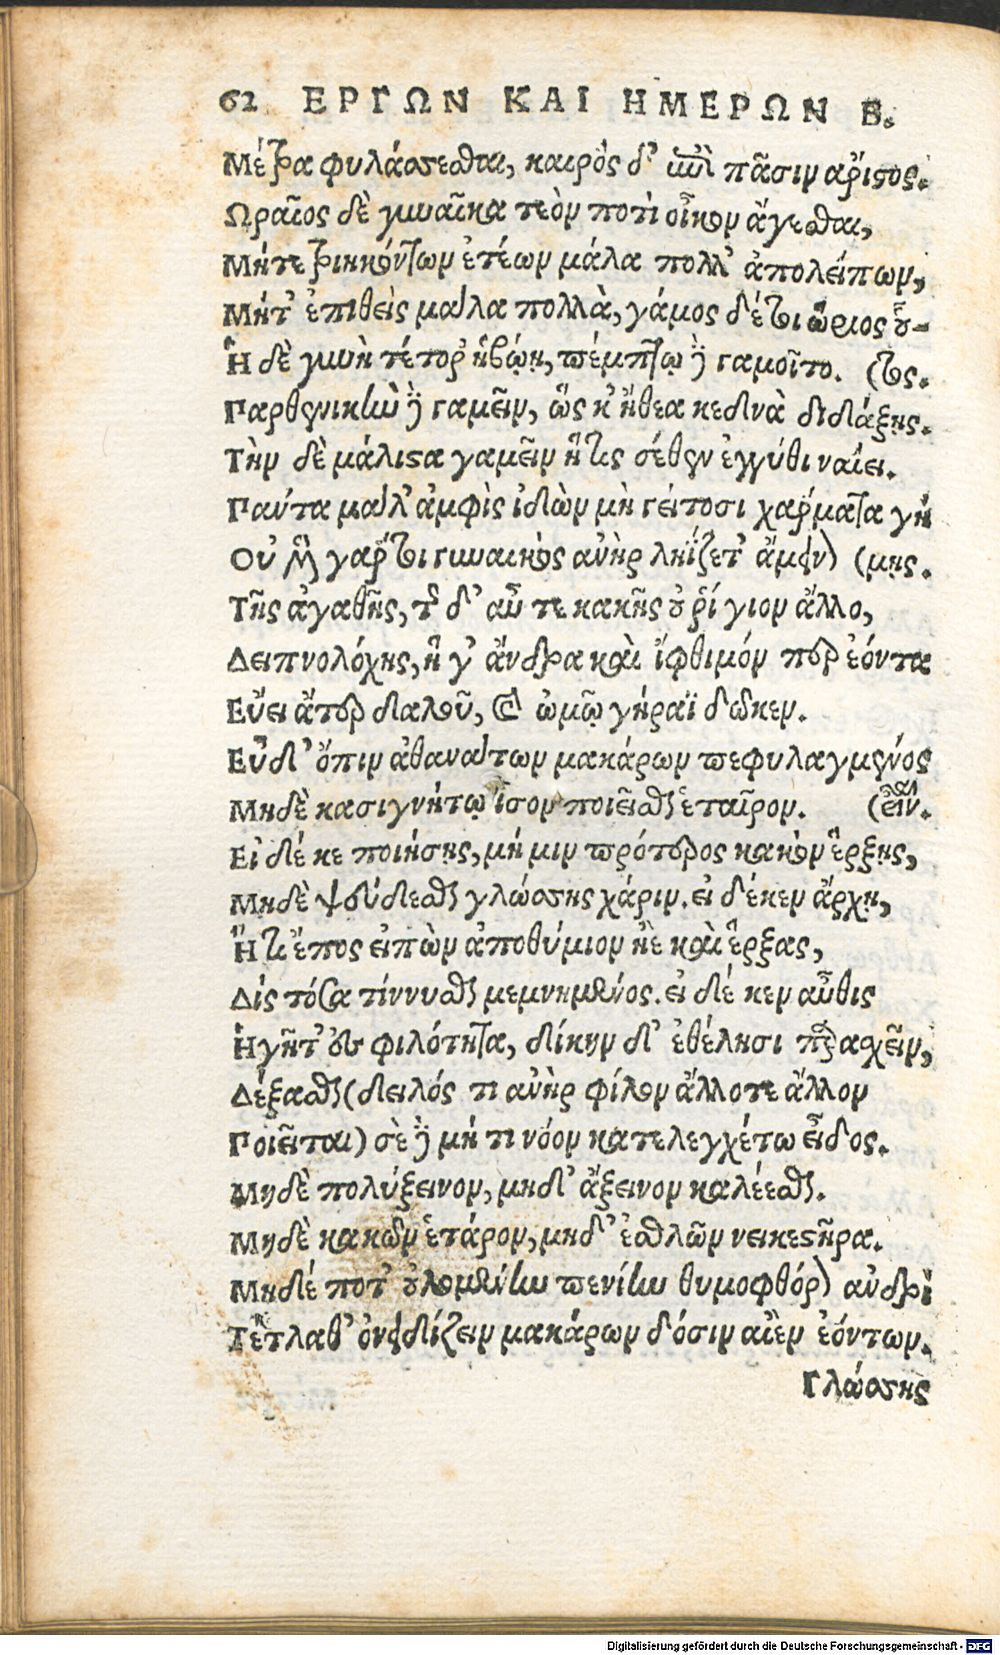 62 ΕΡΓΩΝ ΚΑΙ ΗΜΕΡΩΝ Β.
Μέτρα φυλάσσεσθαι, καιρὸς δ' ἐπὶ πᾶσιν ἄριστος.
Ωραῖος δὲ γυναῖκα τεὸν ποτὶ οἶκον ἄγεσθαι,
Μήτε τριηκόντων ἐτέων μάλα πολλ' ἀπολείπων,
Μήτ' ἐπιθεὶς μάλα πολλὰ, γάμος δέ τοι ὥριος οὗ-
Ἡ δὲ γυνὴ τέτορ' ἡβώῃ, πέμπτῳ δὲ γαμοῖτο. (τος.
Παρθενικὴν δὲ γαμεῖν, ὥς κ' ἤθεα κεδνὰ διδάξῃς.
Τὴν δὲ μάλιστα γαμεῖν ἥτις σέθεν ἐγγύθι ναίει.
Πάντα μάλ' ἀμφὶς ἰδὼν μὴ γείτοσι χάρματα γή
Οὐ μὲν γάρ τοι γυναικὸς ἀνὴρ ληΐζετ' ἄμεινον (μῃς.
Τῆς ἀγαθῆς, τῆς δ' αὖτε κακῆς οὐ ῥίγιον ἄλλο,
Δειπνολόχης, ἥ γ' ἄνδρα καὶ ἴφθιμόν περ ἐόντα
Εὕει ἄτερ δαλοῦ, καὶ ὠμῷ γήραϊ δῶκεν.
Εὖ δ' ὄπιν ἀθανάτων μακάρων πεφυλαγμένος
Μηδὲ κασιγνήτῳ ἶσον ποιεῖσθαι ἑταῖρον. (εἶναι.
Εἰ δέ κε ποιήσῃς, μή μιν πρότερος κακὸν ἔρξῃς,
Μηδὲ ψεύδεσθαι γλώσσης χάριν. εἰ δέ κεν ἄρχῃ,
Ἤ τι ἔπος εἰπὼν ἀποθύμιον ἠὲ καὶ ἔρξας,
Δὶς τόσα τίννυσθαι μεμνημένος. εἰ δέ κεν αὖθις
Ἡγῆτ' ἐς φιλότητα, δίκην δ' ἐθέλησι παρασχεῖν,
Δέξασθαι (δειλός τι ἀνὴρ φίλον ἄλλοτε ἄλλον
Ποιεῖται) σὲ δὲ μή τι νόον κατελεγχέτω εἶδος.
Μηδὲ πολύξεινον, μηδ' ἄξεινον καλέεσθαι.
Μηδὲ κακῶν ἑτάρον, μηδ' ἐσθλῶν νεικεστῆρα.
Μηδέ ποτ' οὐλομένην πενίην θυμοφθόρον ἀνδρὶ
Τέτλαθ' ὀνειδίζειν μακάρων δόσιν αἰὲν ἐόντων.
Γλώσσης
Digitalisierung gefördert durch die Deutsche Forschungsgemeinschaft - DFG